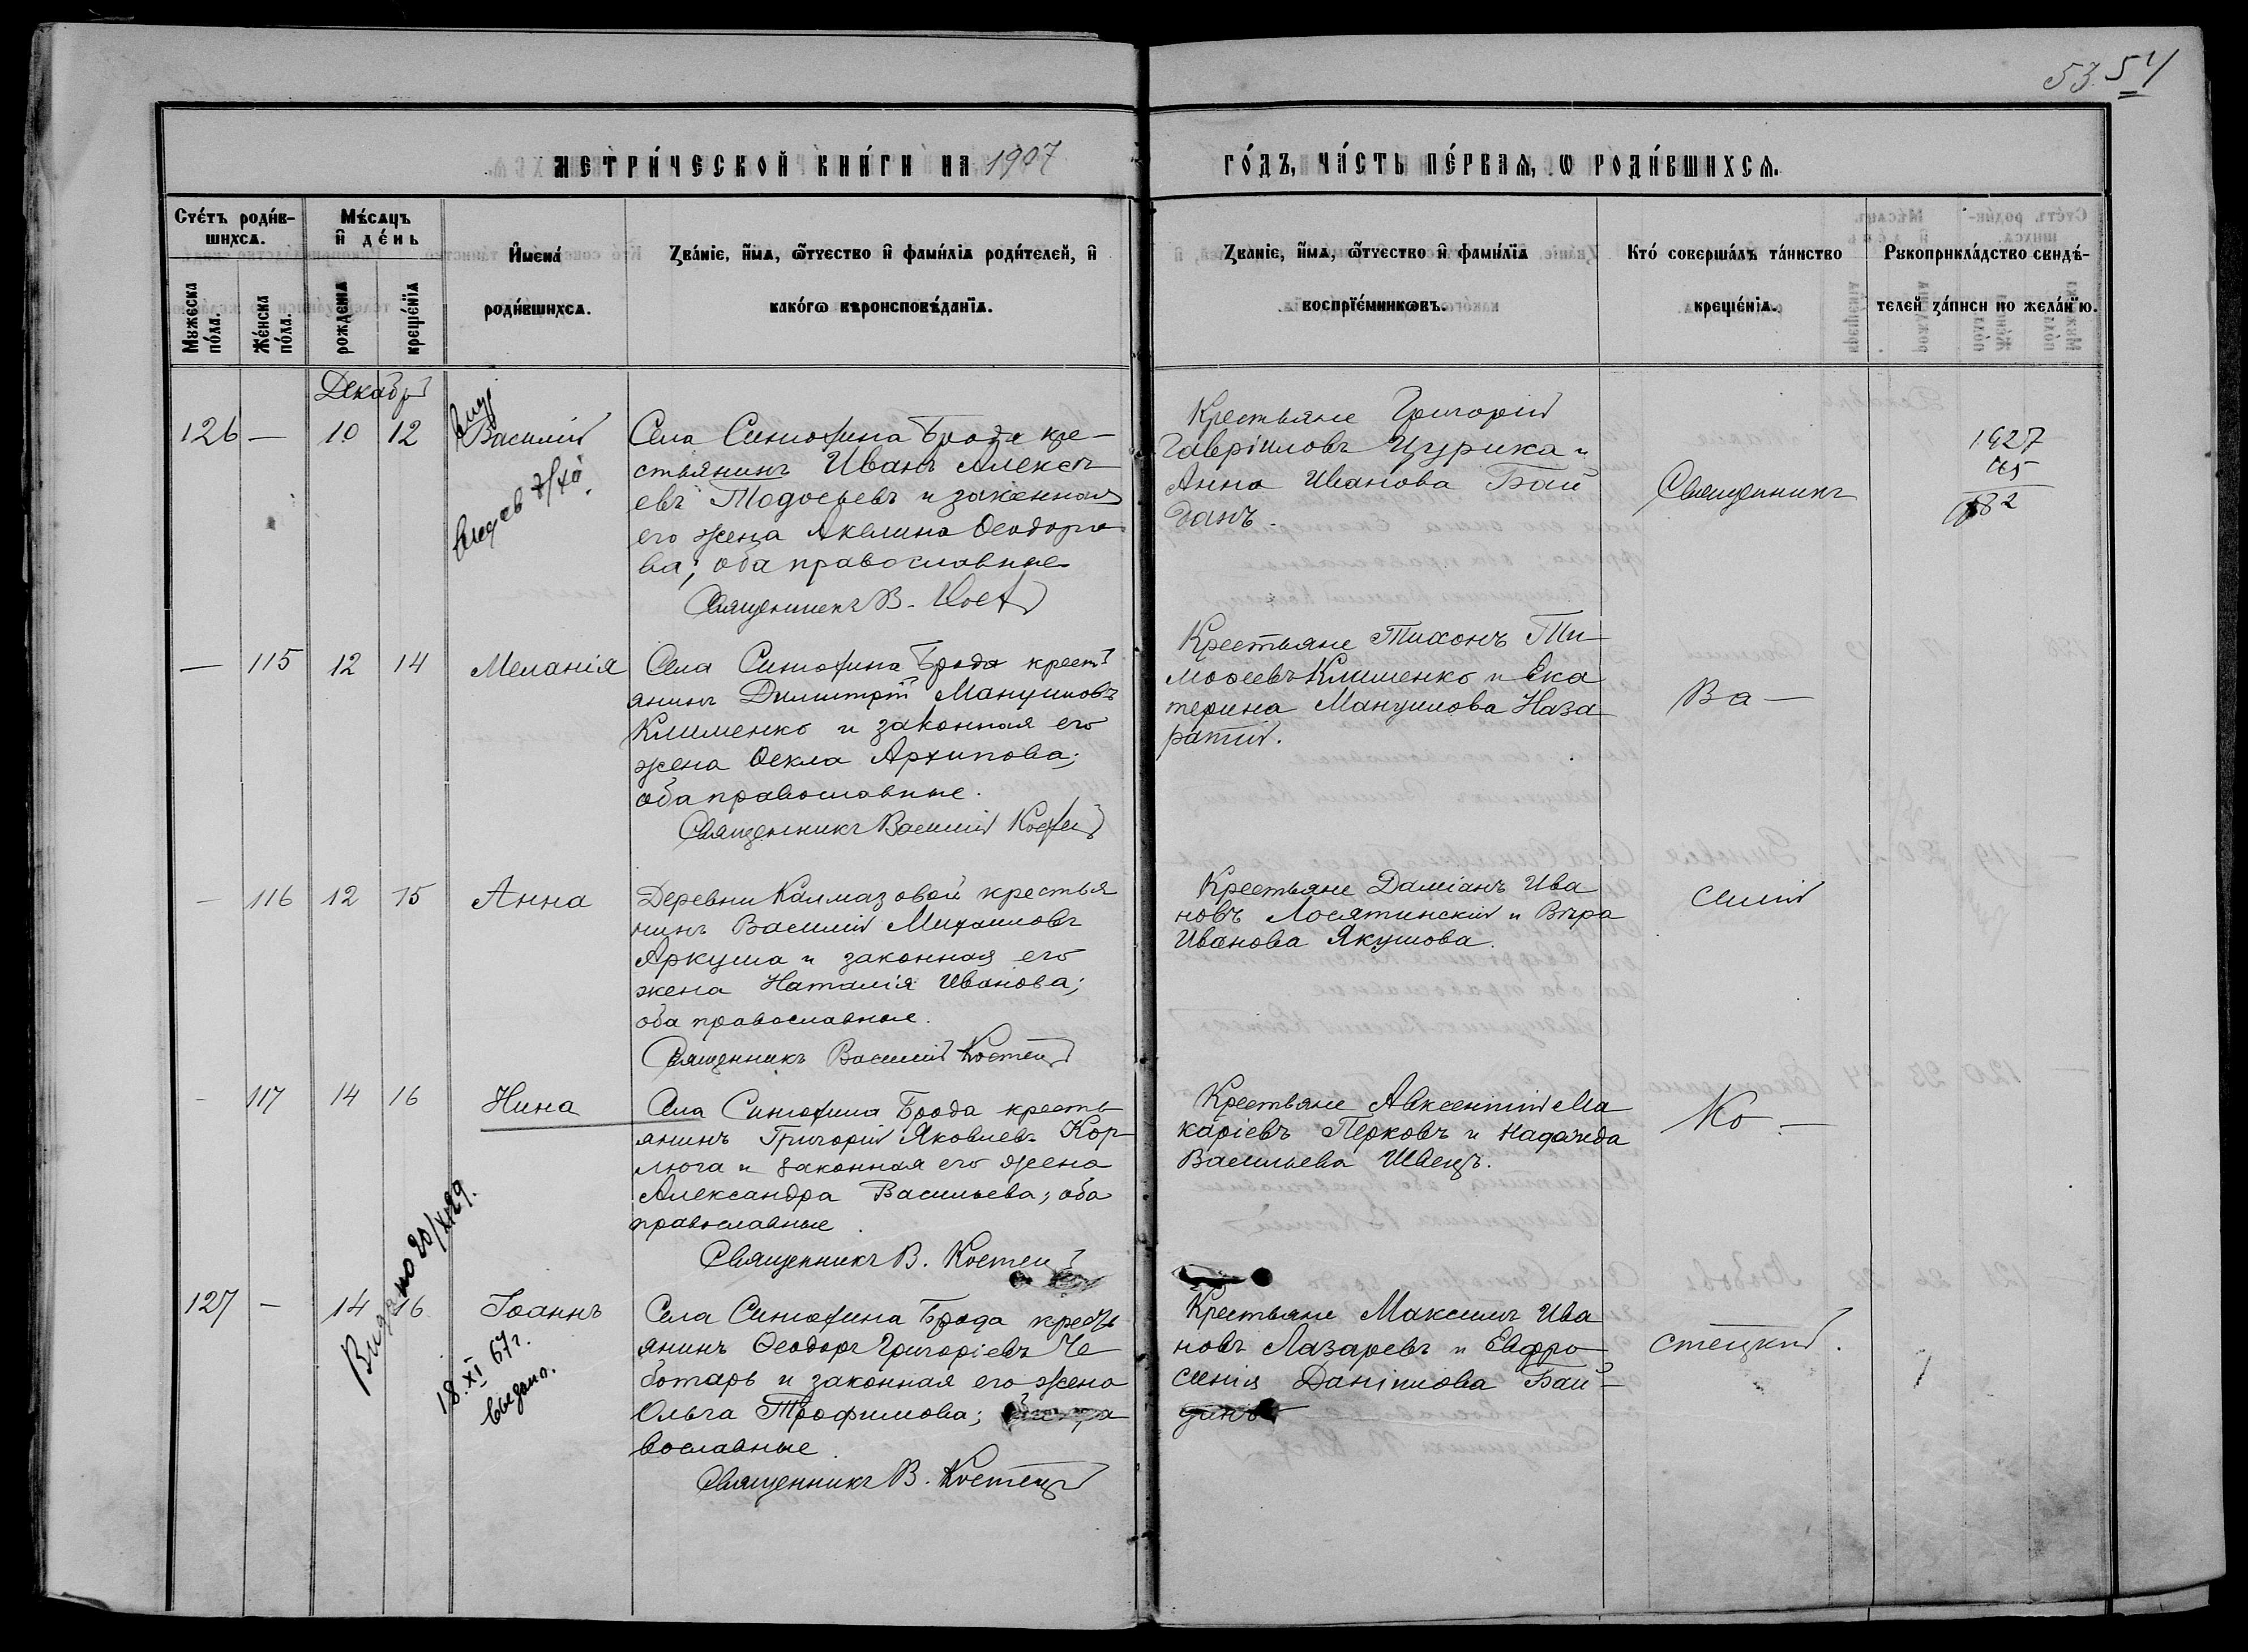 53. 54
МЕТРИ́ЧЕСКОЙ КНИ́ГИ НА 1907
ГО́ДЪ, ЧА́СТЬ ПЕ́РВАѦ, Ѡ РОДИ́ВШИХСѦ.
Сче́тъ роди́в-
шихсѧ.
Мꙋ́жеска по́ла.
Же́нска по́ла.
Мѣ́сѧцъ
и де́нь
рожде́нїѧ
креще́нїѧ
И҆мена́
роди́вшихсѧ.
Зва́нїе, и҆́мѧ, ѻ҆́тчество и҆ фами́лїѧ роди́телей, и҆
како́гѡ вѣроисповѣ́данїѧ.
Зва́нїе, и҆́мѧ, ѻ҆́тчество и҆ фами́лїѧ
воспрїе́мникѡвъ.
Кто́ соверша́лъ та́инство
креще́нїѧ.
Рꙋкоприкла́дство свидѣ́-
телей за́писи по жела́нїю.
Декабрь
126 — 10 12 Василій
Села Синюхина Брода кре-
стьянинъ Иванъ Алексѣ-
евъ Тодосьевъ и законная
его жена Акилина Ѳеодоро-
ва; оба православные
Священникъ В. Кост
Крестьяне Григорій
Гавріиловъ Цурика и
Анна Иванова Бай
данъ.
Священникъ
1927
45
— 115 12 14 Меланія
Села Синюхина Брода кресть
янинъ Димитрій Мануиловъ
Клименко и законная его
жена Ѳекла Архипова;
оба православные.
Священникъ Василій Костец
Крестьяне Тихонъ Ти-
моѳеевъ Клименко и Ека
терина Мануилова Наза
ратій.
Ва —
— 116 12 15 Анна
Деревни Калмазовой крестья
нинъ Василій Михаиловъ
Аркуша и законная его
жена Наталія Иванова;
оба православные.
Священникъ Василій Костец
Крестьяне Даміанъ Ива
новъ Лосятинскій и Вѣра
Иванова Якушова.
силій
- 117 14 16 Нина
Села Синюхина Брода кресть
янинъ Григорій Яковлевъ Кор-
люга и законная его жена
Александра Васильева; оба
православные.
Священникъ В. Костец
Крестьяне Авксентій Ма
каріевъ Перковъ и Надежда
Васильева Швецъ.
Ко —
Видано 20/XI 29.
127 — 14 16 Іоаннъ
18.XI 67 г.
Села Синюхина Брода кресть
янинъ Ѳеодоръ Григоріевъ Че
ботарь и законная его жена
Ольга Трофимова;
вославные
Священникъ В. Костецк
Крестьяне Максимъ Ива
новъ Лазаревъ и Евфро
синія Даніилова Бай-
данъ
стецкій.